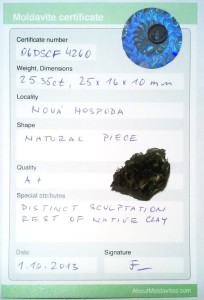 Moldavite certificate
Certificate number
06DSCF4260
Weight, Dimensions
25.35ct, 25x16x10mm
Locality
NOVÁ HOSPODA
Shape
NATURAL PIECE
Quality
A+
Special attributes
DISTINCT SCULPTATION
REST OF NATIVE CLAY
Date
Signature
1.10.2013
AboutMoldavites.com